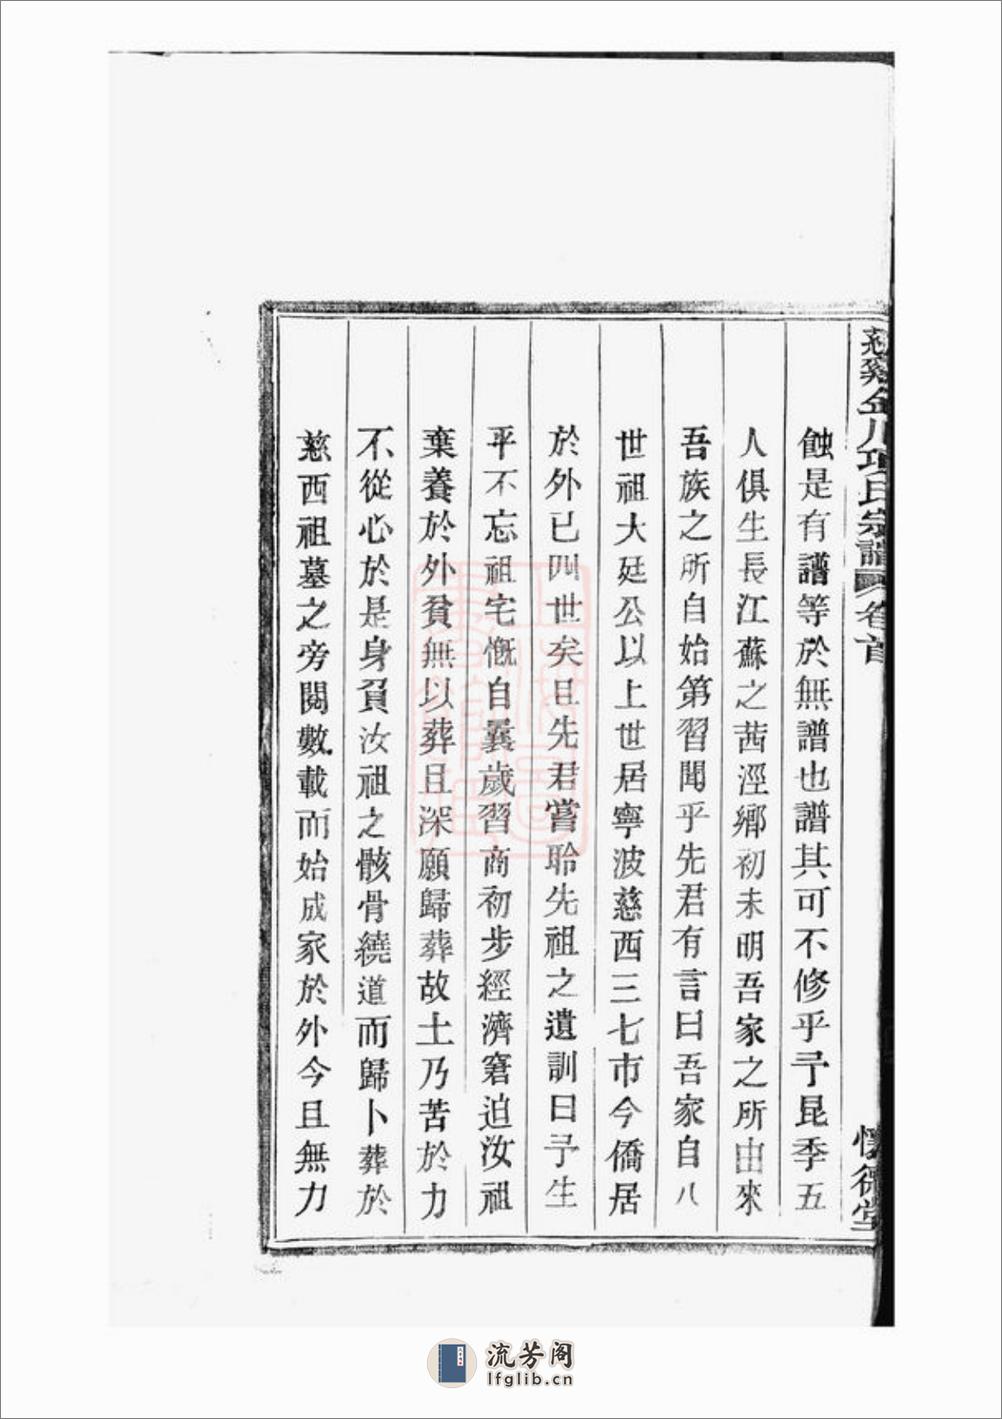 慈谿金川項氏宗譜 卷首
懷德堂
蝕是有譜等於無譜也譜其可不修乎予昆季五
人俱生長江蘇之茜涇鄉初未明吾家之所由來
吾族之所自始第習聞乎先君有言曰吾家自八
世祖大廷公以上世居寧波慈西三七市今僑居
於外已四世矣且先君嘗聆先祖之遺訓曰予生
平不忘祖宅慨自曩歲習商初步經濟窘迫汝祖
棄養於外貧無以葬且深願歸葬故土乃苦於力
不從心於是身負汝祖之骸骨繞道而歸卜葬於
慈西祖墓之旁閱數載而始成家於外今且無力
流芳阁
lfglib.cn